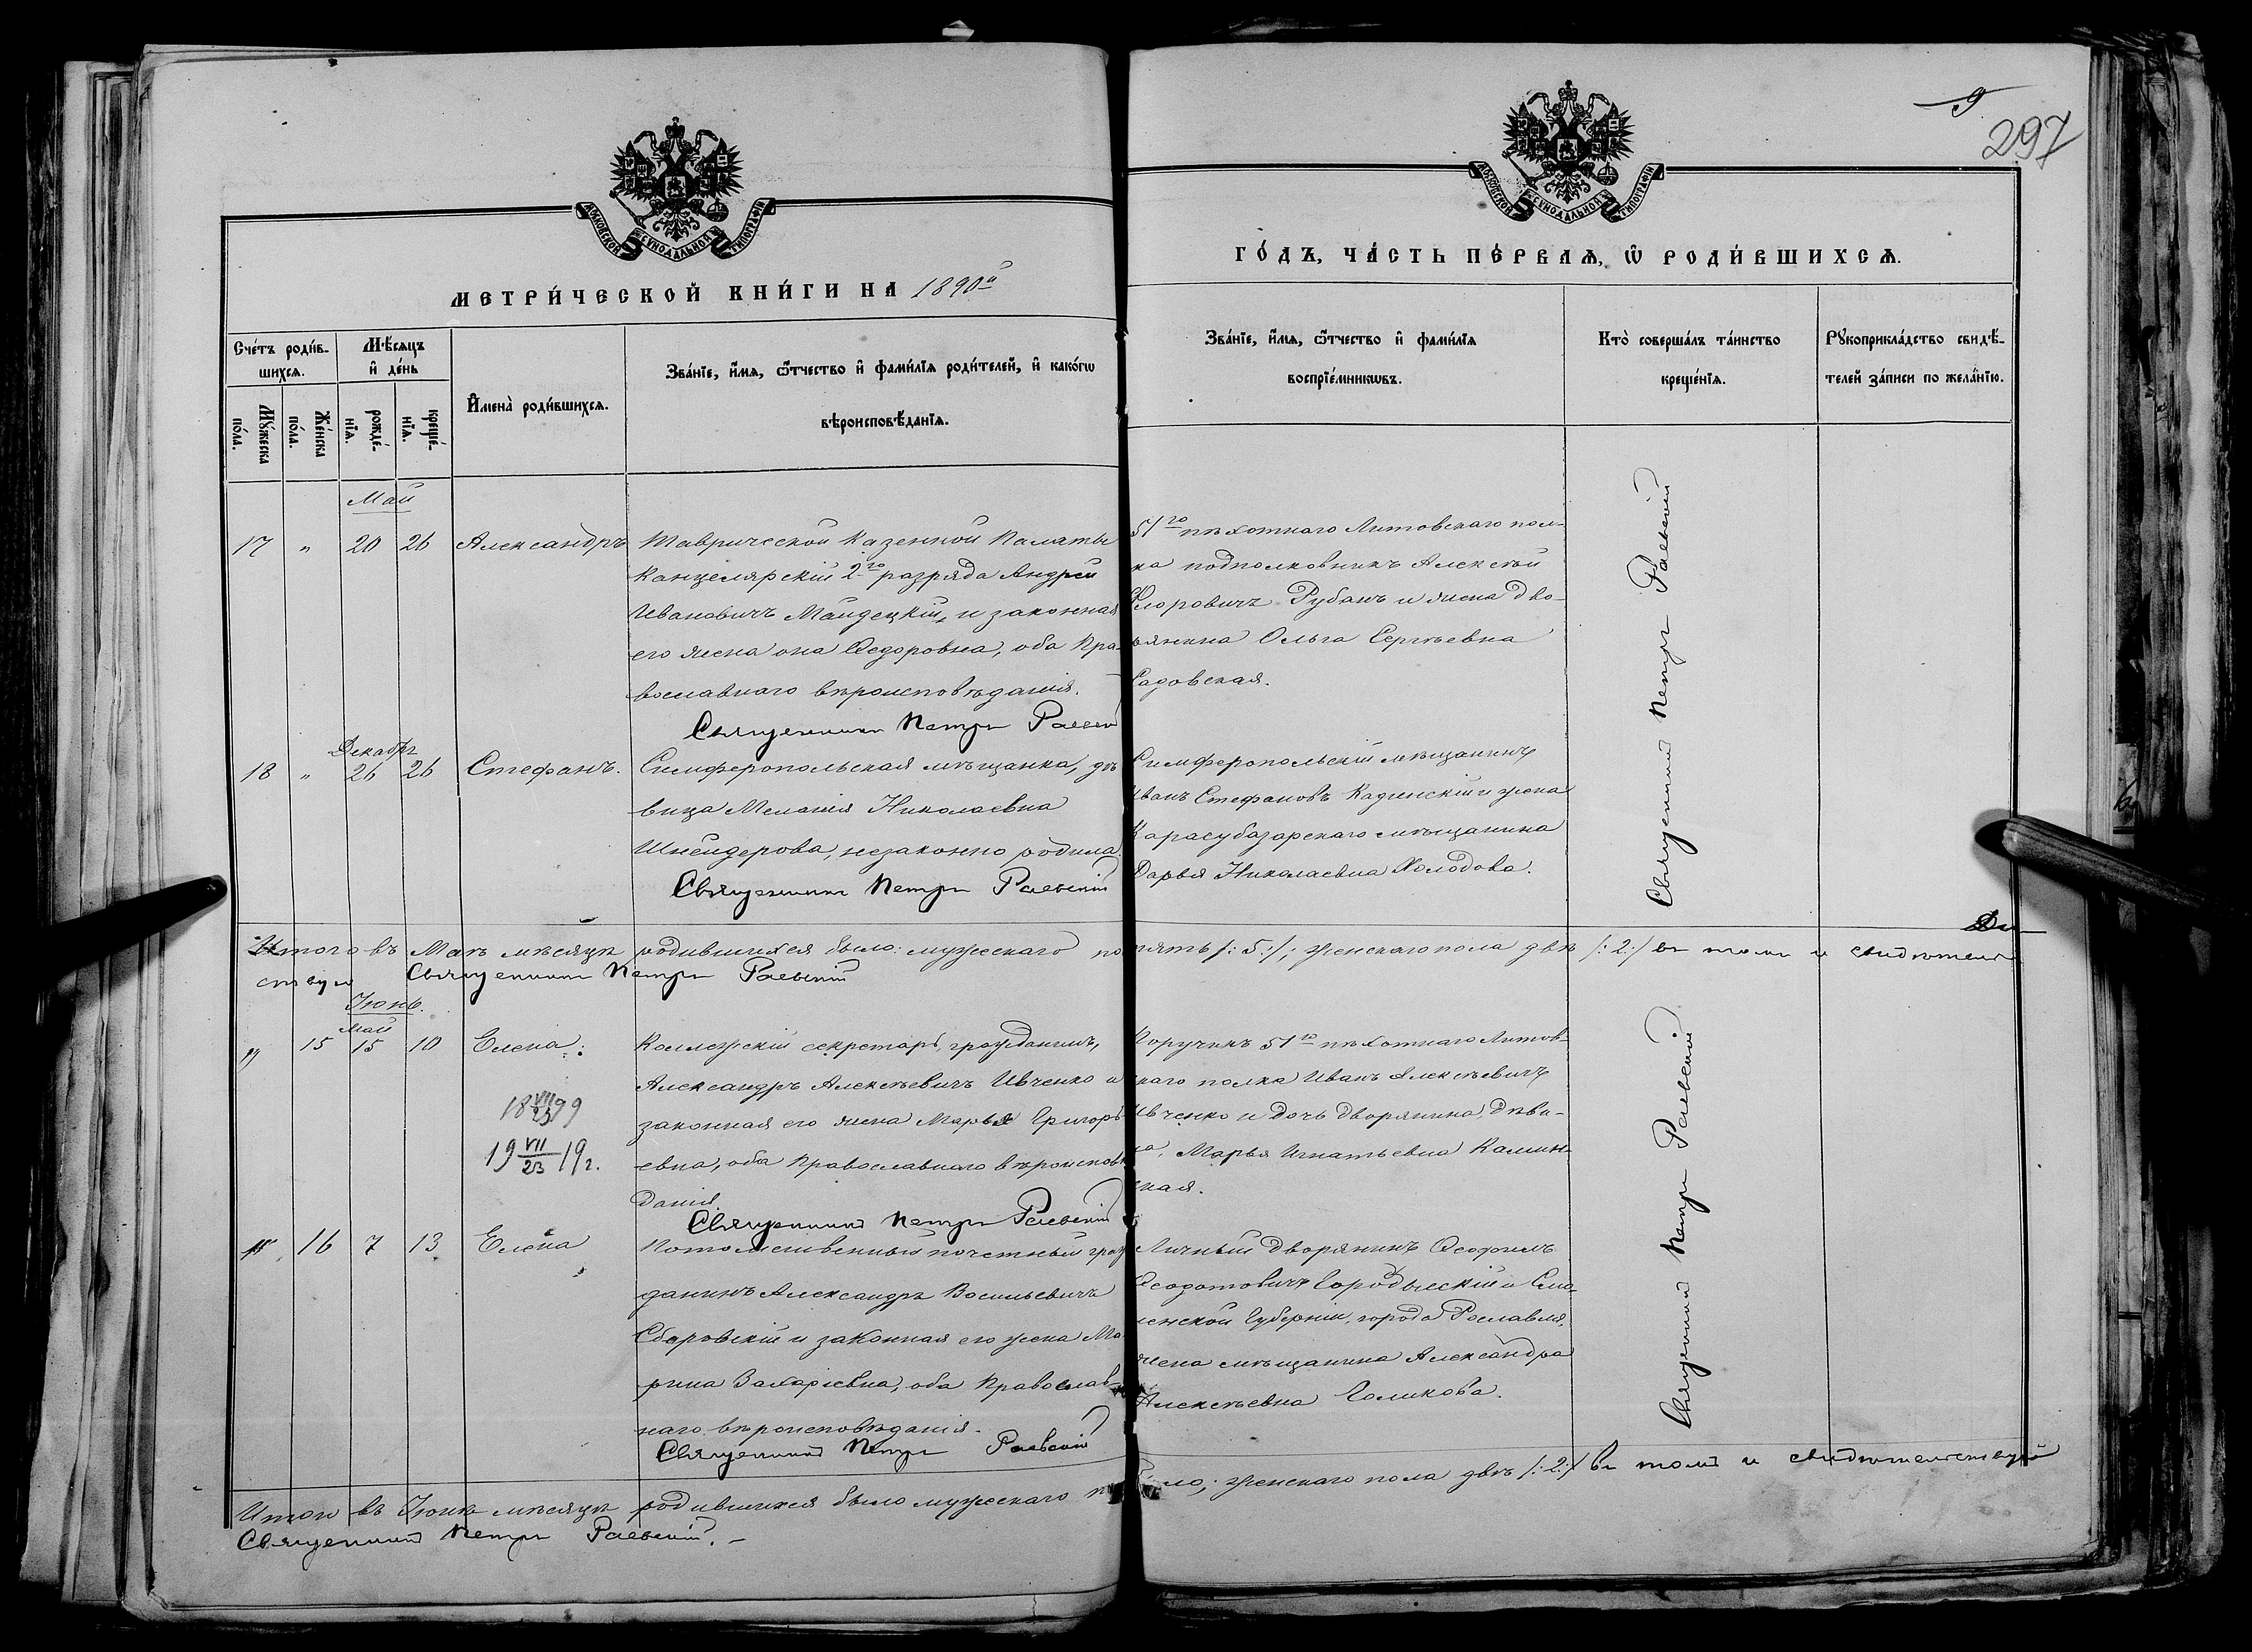 9
297
МОСКОВСКОЙ СѴНОДАЛЬНОЙ ТИПОГРАФІИ
МОСКОВСКОЙ СѴНОДАЛЬНОЙ ТИПОГРАФІИ
МЕТРИ́ЧЕСКОЙ КНИ́ГИ НА 1890й
ГО́ДЪ, ЧА́СТЬ ПЕ́РВАѦ, Ѽ РОДИ́ВШИХСѦ.
Сче́тъ роди́в-
шихсѧ.
Мѣ́сѧцъ
и҆ де́нь
Мꙋ́жеска
по́ла.
Же́нска
по́ла.
рожде́-
нїѧ.
креще́-
нїѧ.
И҆мена̀ роди́вшихсѧ.
Зва́нїе, и҆́мѧ, ѻ҆́тчество и҆ фами́лїѧ роди́телей, и҆ како́гѡ
вѣроисповѣ́данїѧ.
Зва́нїе, и҆́мѧ, ѻ҆́тчество и҆ фами́лїѧ
воспрїе́мникѡвъ.
Кто̀ соверша́лъ та́инство
креще́нїѧ.
Рꙋкоприкла́дство свидѣ́-
телей за́писи по жела́нїю.
Май
17 " 20 26 Александръ
Таврической Казенной Палаты
Канцелярскій 2го разряда Андрей
Ивановичъ Майдецкій, и законная
его жена она Ѳедоровна, оба Пра-
вославнаго вѣроисповѣданія.
Священникъ Петръ Раевскій
51го пѣхотнаго Литовскаго пол-
ка подполковникъ Алексѣй
Флоровичъ Рубанъ и жена дво-
рянина Ольга Сергѣевна
Садовская.
Священникъ Петръ Раевскій
Декабрь
18 " 26 26 Стефанъ.
Симферопольская мѣщанка, дѣ
вица Меланія Николаевна
Шнейдерова, незаконно родила
Священникъ Петръ Раевскій
Симферопольскій мѣщанинъ
Иванъ Стефановъ и жена
Карасубазарскаго мѣщанина
Дарья Николаевна Холодова.
Итого въ Маѣ мѣсяцѣ родившихся было: мужескаго по пять /:5:/; женскаго пола двѣ /:2:/ въ томъ и свидѣтель
ствую Священникъ Петръ Раевскій
Іюнь.
Май
" 15 15 10 Елена.
18 VII/23 99
19 VII/23 19 г.
Коллежскій секретарь, гражданинъ,
Александръ Алексѣевичъ Ивченко и
законная его жена Марья Григорь
евна, оба Православнаго вѣроисповѣ
данія
Священникъ Петръ Раевскій
Поручикъ 51го пѣхотнаго Литов-
скаго полка Иванъ Алексѣевичъ
Ивченко и дочь дворянина, дѣви-
ца, Марья Игнатьевна Калин-
ная.
Священникъ Петръ Раевскій
" 16 7 13 Елена
Потомственный почетный граж
данинъ Александръ Васильевичъ
Сборовскій и законная его жена Ма
рина Захаріевна, оба Православ-
наго вѣроисповѣданія.
Священникъ Петръ Раевскій
Личный дворянинъ Ѳеофилъ
Ѳеодотовичъ Городыскій и Смо-
ленской Губерніи, города Рославля,
жена мѣщанина Александра
Алексѣевна Голикова.
Священникъ Петръ Раевскій
Итого въ Іюнѣ мѣсяцѣ родившихся было мужескаго было; женскаго пола двѣ /:2:/ въ томъ и свидѣтельствую
Священникъ Петръ Раевскій.